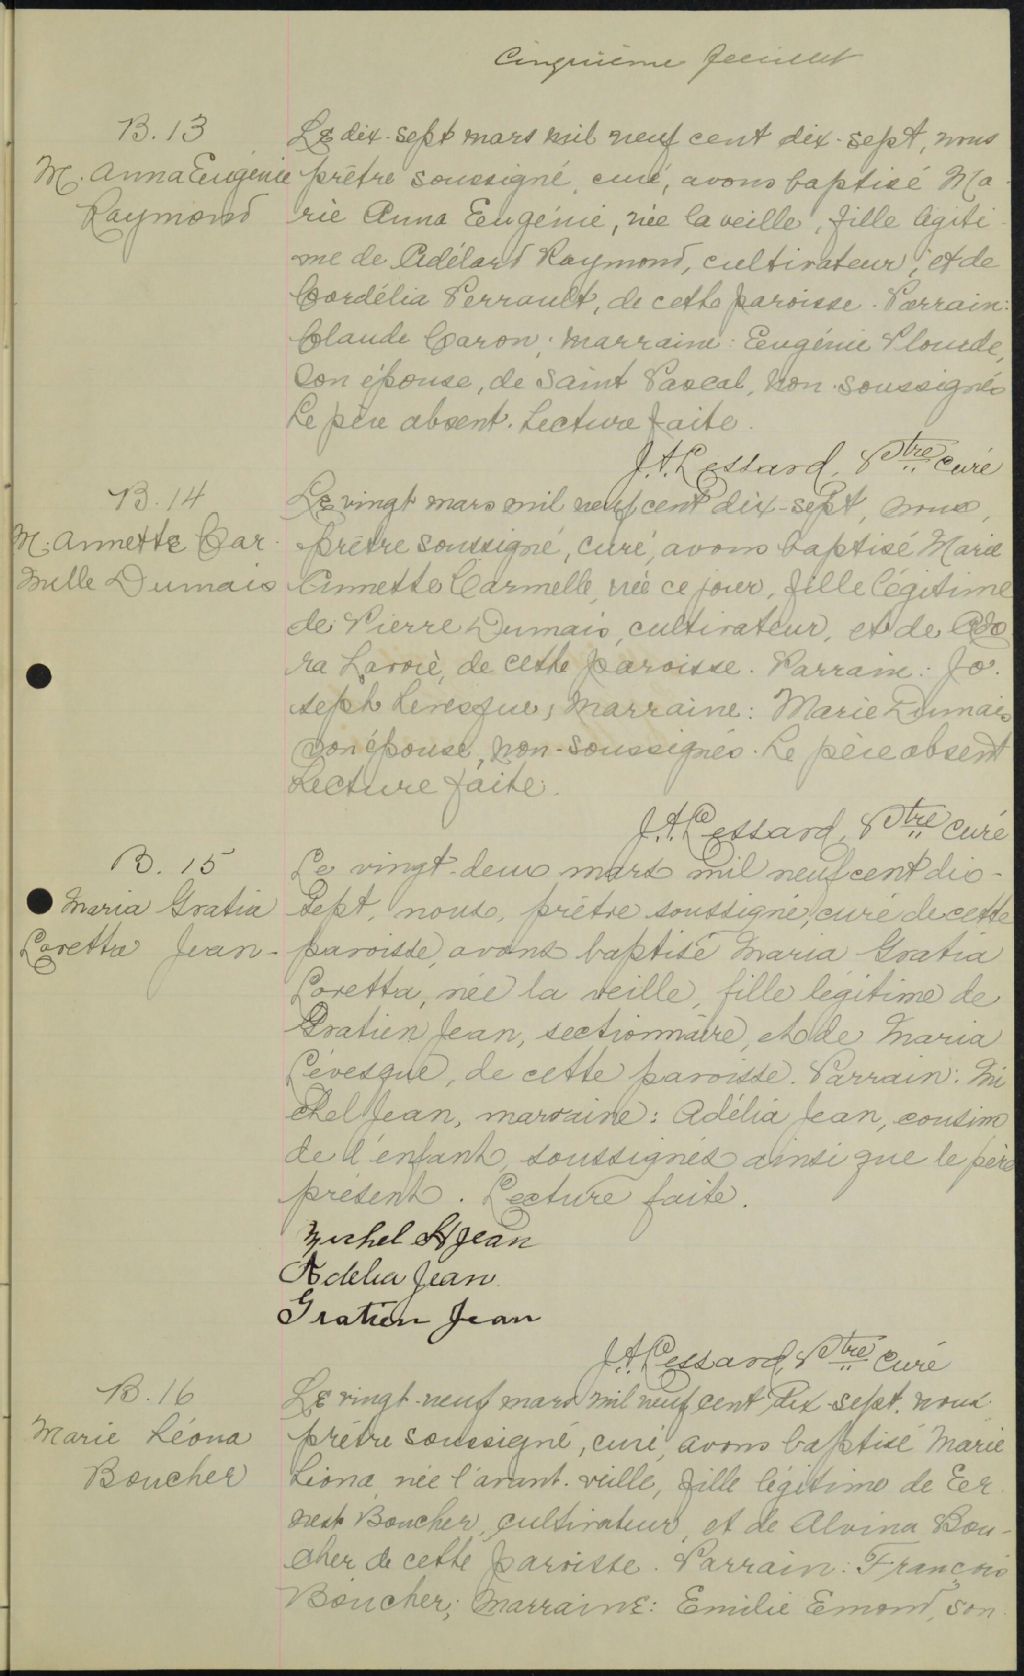 Cinquième feuillet
B. 13
M. Anna Eugénie
Raymond
Le dix-sept mars mil neuf cent dix-sept, nous
prêtre soussigné, curé, avons baptisé Ma-
rie Anna Eugénie, née la veille, fille légiti-
me de Adélard Raymond, cultivateur, et de
Cordélia Perrault, de cette paroisse. Parrain:
Claude Caron; marraine: Eugénie Plourde,
son épouse, de Saint Pascal, non-soussignés
Le père absent. Lecture faite.
J.A. Lessard, Ptre curé
B. 14
M. Annette Car-
melle Dumais
Le vingt mars mil neuf cent dix-sept, nous,
prêtre soussigné, curé, avons baptisé Marie
Annette Carmelle, née ce jour, fille légitime
de Pierre Dumais, cultivateur, et de Ado
ra Lavoie, de cette paroisse. Parrain: Jo-
seph Levesque; Marraine: Marie Dumais
son épouse, non-soussignés. Le père absent
Lecture faite.
J.A. Lessard, Ptre curé
B. 15
Maria Gratia
Loretta Jean-
Le vingt-deux mars mil neuf cent dix-
sept, nous, prêtre soussigné, curé de cette
paroisse, avons baptisé Maria Gratia
Loretta, née la veille, fille légitime de
Gratien Jean, sectionnaire, et de Maria
Lévesque, de cette paroisse. Parrain: Mi
chel Jean, marraine: Adélia Jean, cousins
de l'enfant, soussignés ainsi que le père
présent. Lecture faite.
Michel St Jean
Adelia Jean
Gratien Jean
J.A. Lessard, Ptre curé
B. 16
Marie Léona
Boucher
Le vingt-neuf mars mil neuf cent dix-sept, nous
prêtre soussigné, curé, avons baptisé Marie
Léona, née l'avant-veille, fille légitime de Er
nest Boucher, cultivateur, et de Alvina Bou-
cher de cette paroisse. Parrain: François
Boucher; Marraine: Emilie Emond, son